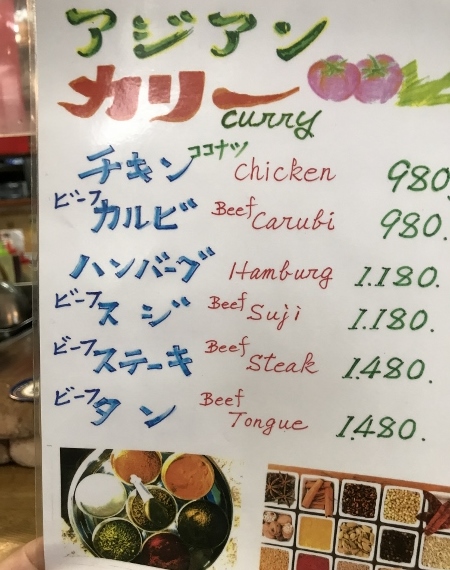 アジアン
カリー
curry
ココナツ
チキン chicken 980
ビーフ カルビ Beef Carubi 980.
ハンバーグ Hamburg 1.180.
ビーフ スジ Beef Suji 1.180.
ビーフ ステーキ Beef Steak 1.480.
ビーフ タン Beef Tongue 1.480.